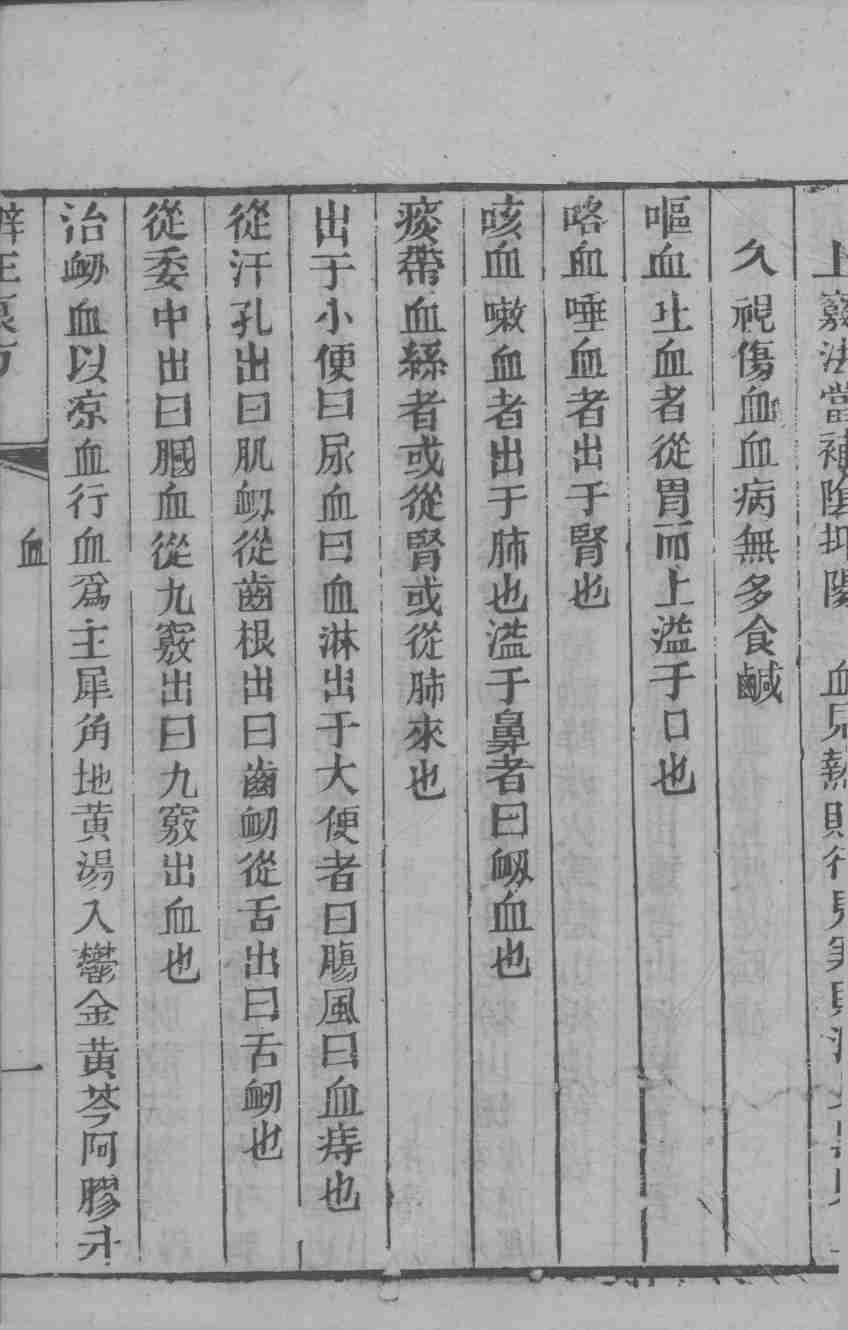 上竅法當補陰抑陽　血見熱則行見寒則
久視傷血血病無多食鹹
嘔血吐血者從胃而上溢于口也
咯血唾血者出于腎也
咳血嗽血者出于肺也溢于鼻者曰衂血也
痰帶血絲者或從腎或從肺來也
出于小便曰尿血曰血淋出于大便者曰腸風曰血痔也
從汗孔出曰肌衂從齒根出曰齒衂從舌出曰舌衂也
從委中出曰膕血從九竅出曰九竅出血也
治衂血以凉血行血爲主犀角地黄湯入鬱金黄芩阿膠升
血
一